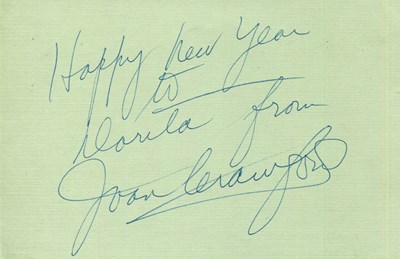 Happy New Year
to
Dorita from
Joan Crawford